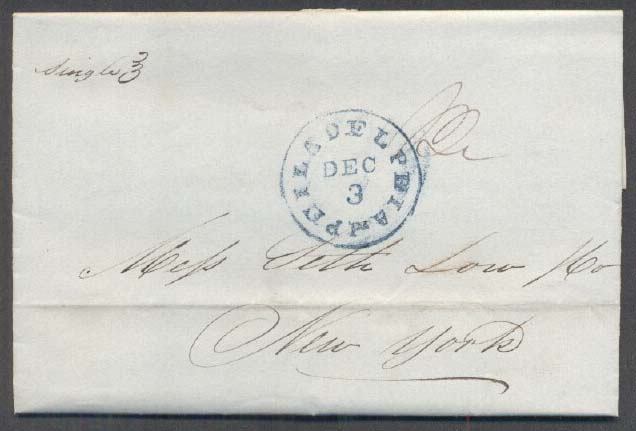 Single
PHILADELPHIA Pa
DEC
3
Mess Seth Low & Co
New York